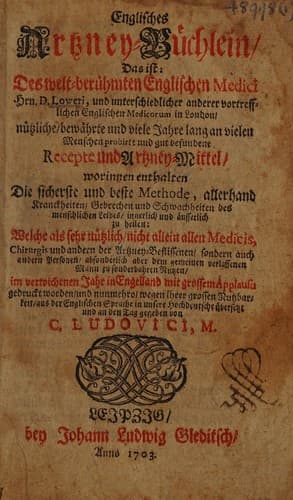 Englisches
Artzney-Büchlein/
Das ist:
Des welt-berühmten Englischen Medici
Hrn. D. Loweri, und unterschiedlicher anderer vortreff-
lichen Englischen Medicorum in London/
nützliche/bewährte und viele Jahre lang an vielen
Menschen probirte und gut befundene
Recepte und Artzney-Mittel/
worinnen enthalten
Die sicherste und beste Methode, allerhand
Kranckheiten/ Gebrechen und Schwachheiten des
menschlichen Leibes/ innerlich und äusserlich
zu heilen:
Welche als sehr nützlich/nicht allein allen Medicis,
Chirurgis und andern der Artzney-Beflissenen/ sondern auch
andern Personen/ absonderlich aber dem gemeinen verlassenen
Mann zu sonderbahren Nutzen/
im verwichenen Jahr in Engelland mit grossem Applausu
gedruckt worden/und nunmehro/ wegen ihrer grossen Nutzbar-
keit/aus der Englischen Sprache in unsere Hochdeutsche übersetzt
und an den Tag gegeben von
C. LUDOVICI, M.
LEIPZIG/
bey Johann Ludwig Gleditsch/
Anno 1703.